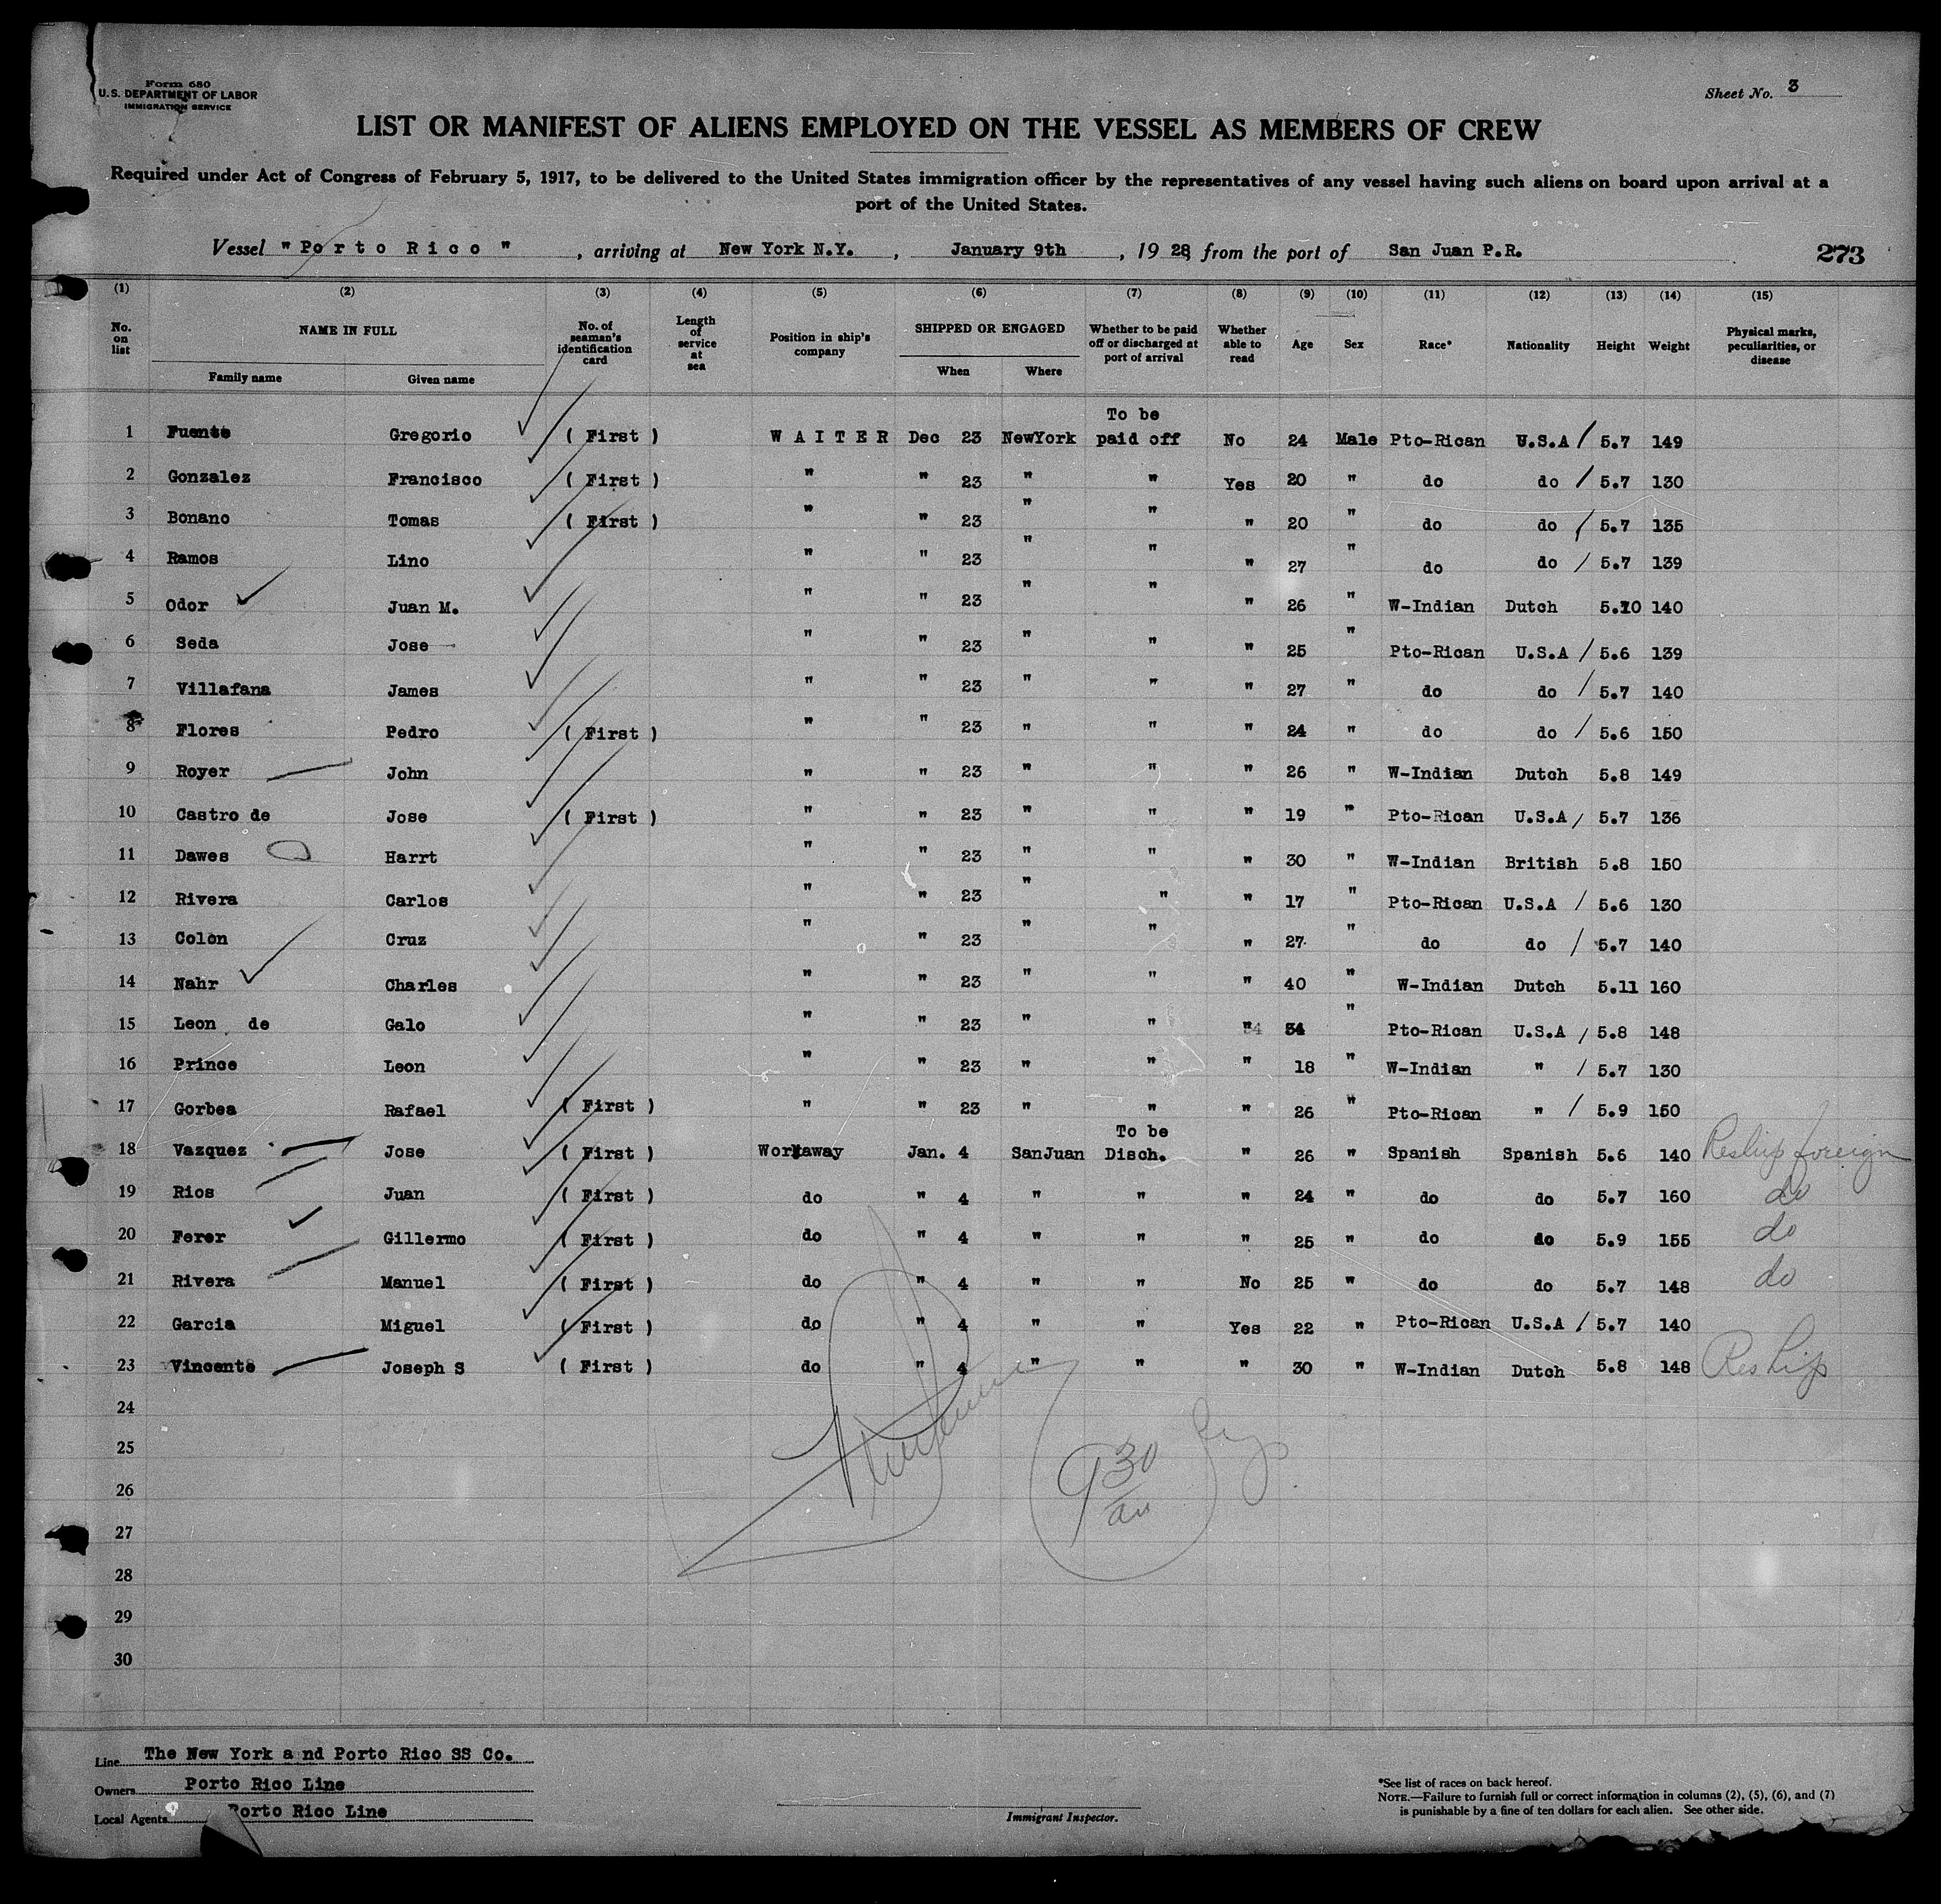 Form 680
U.S. DEPARTMENT OF LABOR
IMMIGRATION SERVICE
Sheet No. 3
LIST OR MANIFEST OF ALIENS EMPLOYED ON THE VESSEL AS MEMBERS OF CREW
Required under Act of Congress of February 5, 1917, to be delivered to the United States immigration officer by the representatives of any vessel having such aliens on board upon arrival at a
port of the United States.
Vessel "Porto Rico", arriving at New York N.Y., January 9th, 1928, from the port of San Juan P.R. 273
(1) (2) (3) (4) (5) (6) (7) (8) (9) (10) (11) (12) (13) (14) (15)
No. on list NAME IN FULL Family name Given name No. of seaman's identification card Length of service at sea Position in ship's company SHIPPED OR ENGAGED When Where Whether to be paid off or discharged at port of arrival Whether able to read Age Sex Race* Nationality Height Weight Physical marks, peculiarities, or disease
1 Fuente Gregorio ( First ) WAITER Dec 23 NewYork To be paid off No 24 Male Pto-Rican U.S.A / 5.7 149
2 Gonzalez Francisco ( First ) " " 23 " " Yes 20 " do do / 5.7 130
3 Bonano Tomas ( First ) " " 23 " " " 20 " do do / 5.7 135
4 Ramos Lino " " 23 " " " 27 " do do / 5.7 139
5 Odor Juan M. " " 23 " " " 26 " W-Indian Dutch 5.10 140
6 Seda Jose " " 23 " " " 25 " Pto-Rican U.S.A / 5.6 139
7 Villafana James " " 23 " " " 27 " do do / 5.7 140
8 Flores Pedro ( First ) " " 23 " " " 24 " do do / 5.6 150
9 Royer John " " 23 " " " 26 " W-Indian Dutch 5.8 149
10 Castro de Jose ( First ) " " 23 " " " 19 " Pto-Rican U.S.A / 5.7 136
11 Dawes Harrt " " 23 " " " 30 " W-Indian British 5.8 150
12 Rivera Carlos " " 23 " " " 17 " Pto-Rican U.S.A / 5.6 130
13 Colon Cruz " " 23 " " " 27 " do do / 5.7 140
14 Nahr Charles " " 23 " " " 40 " W-Indian Dutch 5.11 160
15 Leon de Galo " " 23 " " " 34 " Pto-Rican U.S.A / 5.8 148
16 Prince Leon " " 23 " " " 18 " W-Indian " / 5.7 130
17 Gorbea Rafael ( First ) " " 23 " " " 26 " Pto-Rican " / 5.9 150
18 Vazquez Jose ( First ) Workaway Jan. 4 SanJuan To be Disch. " 26 " Spanish Spanish 5.6 140 Reship foreign
19 Rios Juan ( First ) do " 4 " " " 24 " do do 5.7 160 do
20 Ferer Gillermo ( First ) do " 4 " " " 25 " do do 5.9 155 do
21 Rivera Manuel ( First ) do " 4 " " No 25 " do do 5.7 148 do
22 Garcia Miguel ( First ) do " 4 " " Yes 22 " Pto-Rican U.S.A / 5.7 140
23 Vincente Joseph S ( First ) do " 4 " " " 30 " W-Indian Dutch 5.8 148 Reship
24
25
26
27
28
29
30
9 30 am
Line The New York a nd Porto Rico SS Co.
Owners Porto Rico Line
Local Agents Porto Rico Line
Immigrant Inspector.
*See list of races on back hereof.
NOTE.—Failure to furnish full or correct information in columns (2), (5), (6), and (7)
is punishable by a fine of ten dollars for each alien. See other side.